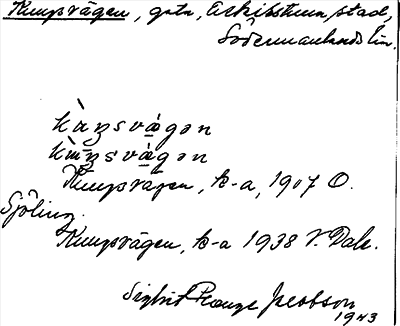 Kungsvägen, gata, Eskilstuna stad,
Södermanlands län.
Kungsvägen, k-a, 1907 O.
Sjöling.
Kungsvägen, k-a 1938 V. Dal.
Sigbrit Plænge Jacobson
1943